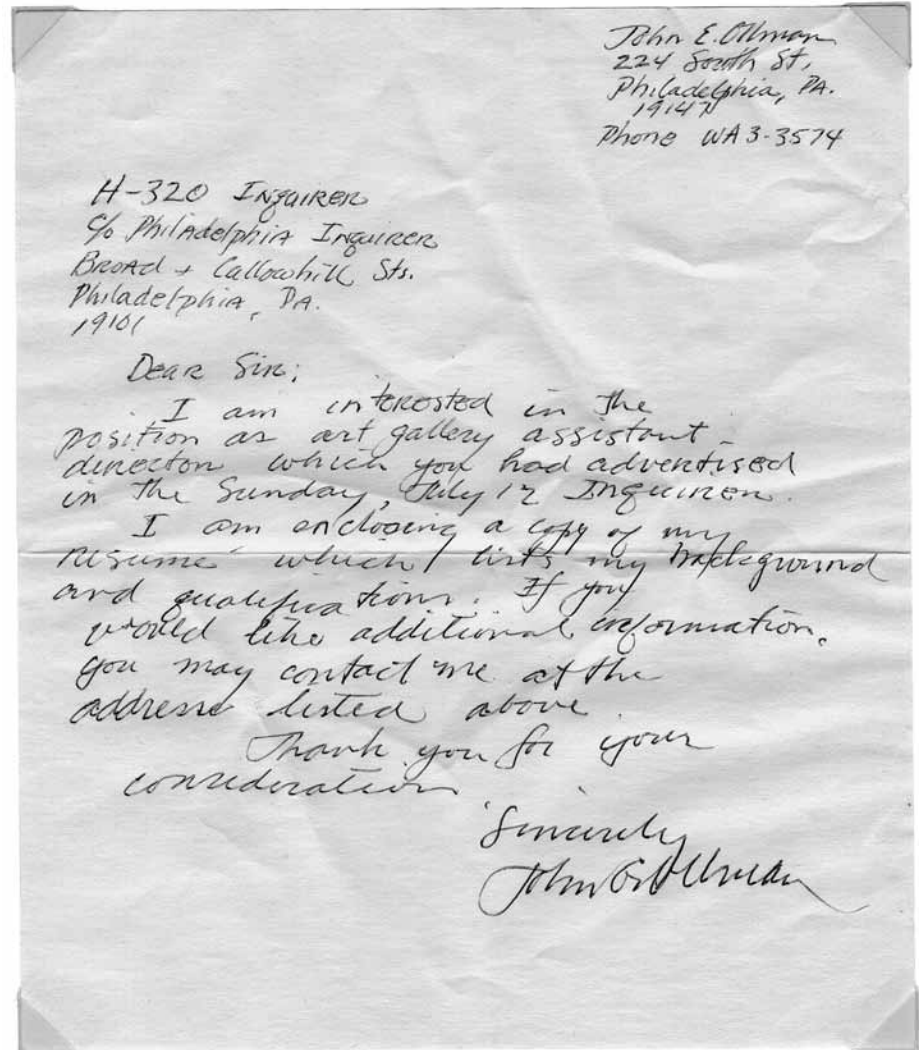 John E. Ollman
224 South St.
Philadelphia, PA.
19147
Phone WA 3-3574
H-320 Inquirer
c/o Philadelphia Inquirer
Broad + Callowhill Sts.
Philadelphia, PA.
19101
Dear Sir;
I am interested in the
position as art gallery assistant-
director which you had advertised
in the Sunday, July 12 Inquirer.
I am enclosing a copy of my
resume which lists my background
and qualifications. If you
would like additional information,
you may contact me at the
address listed above.
Thank you for your
consideration
Sincerely
John E. Ollman